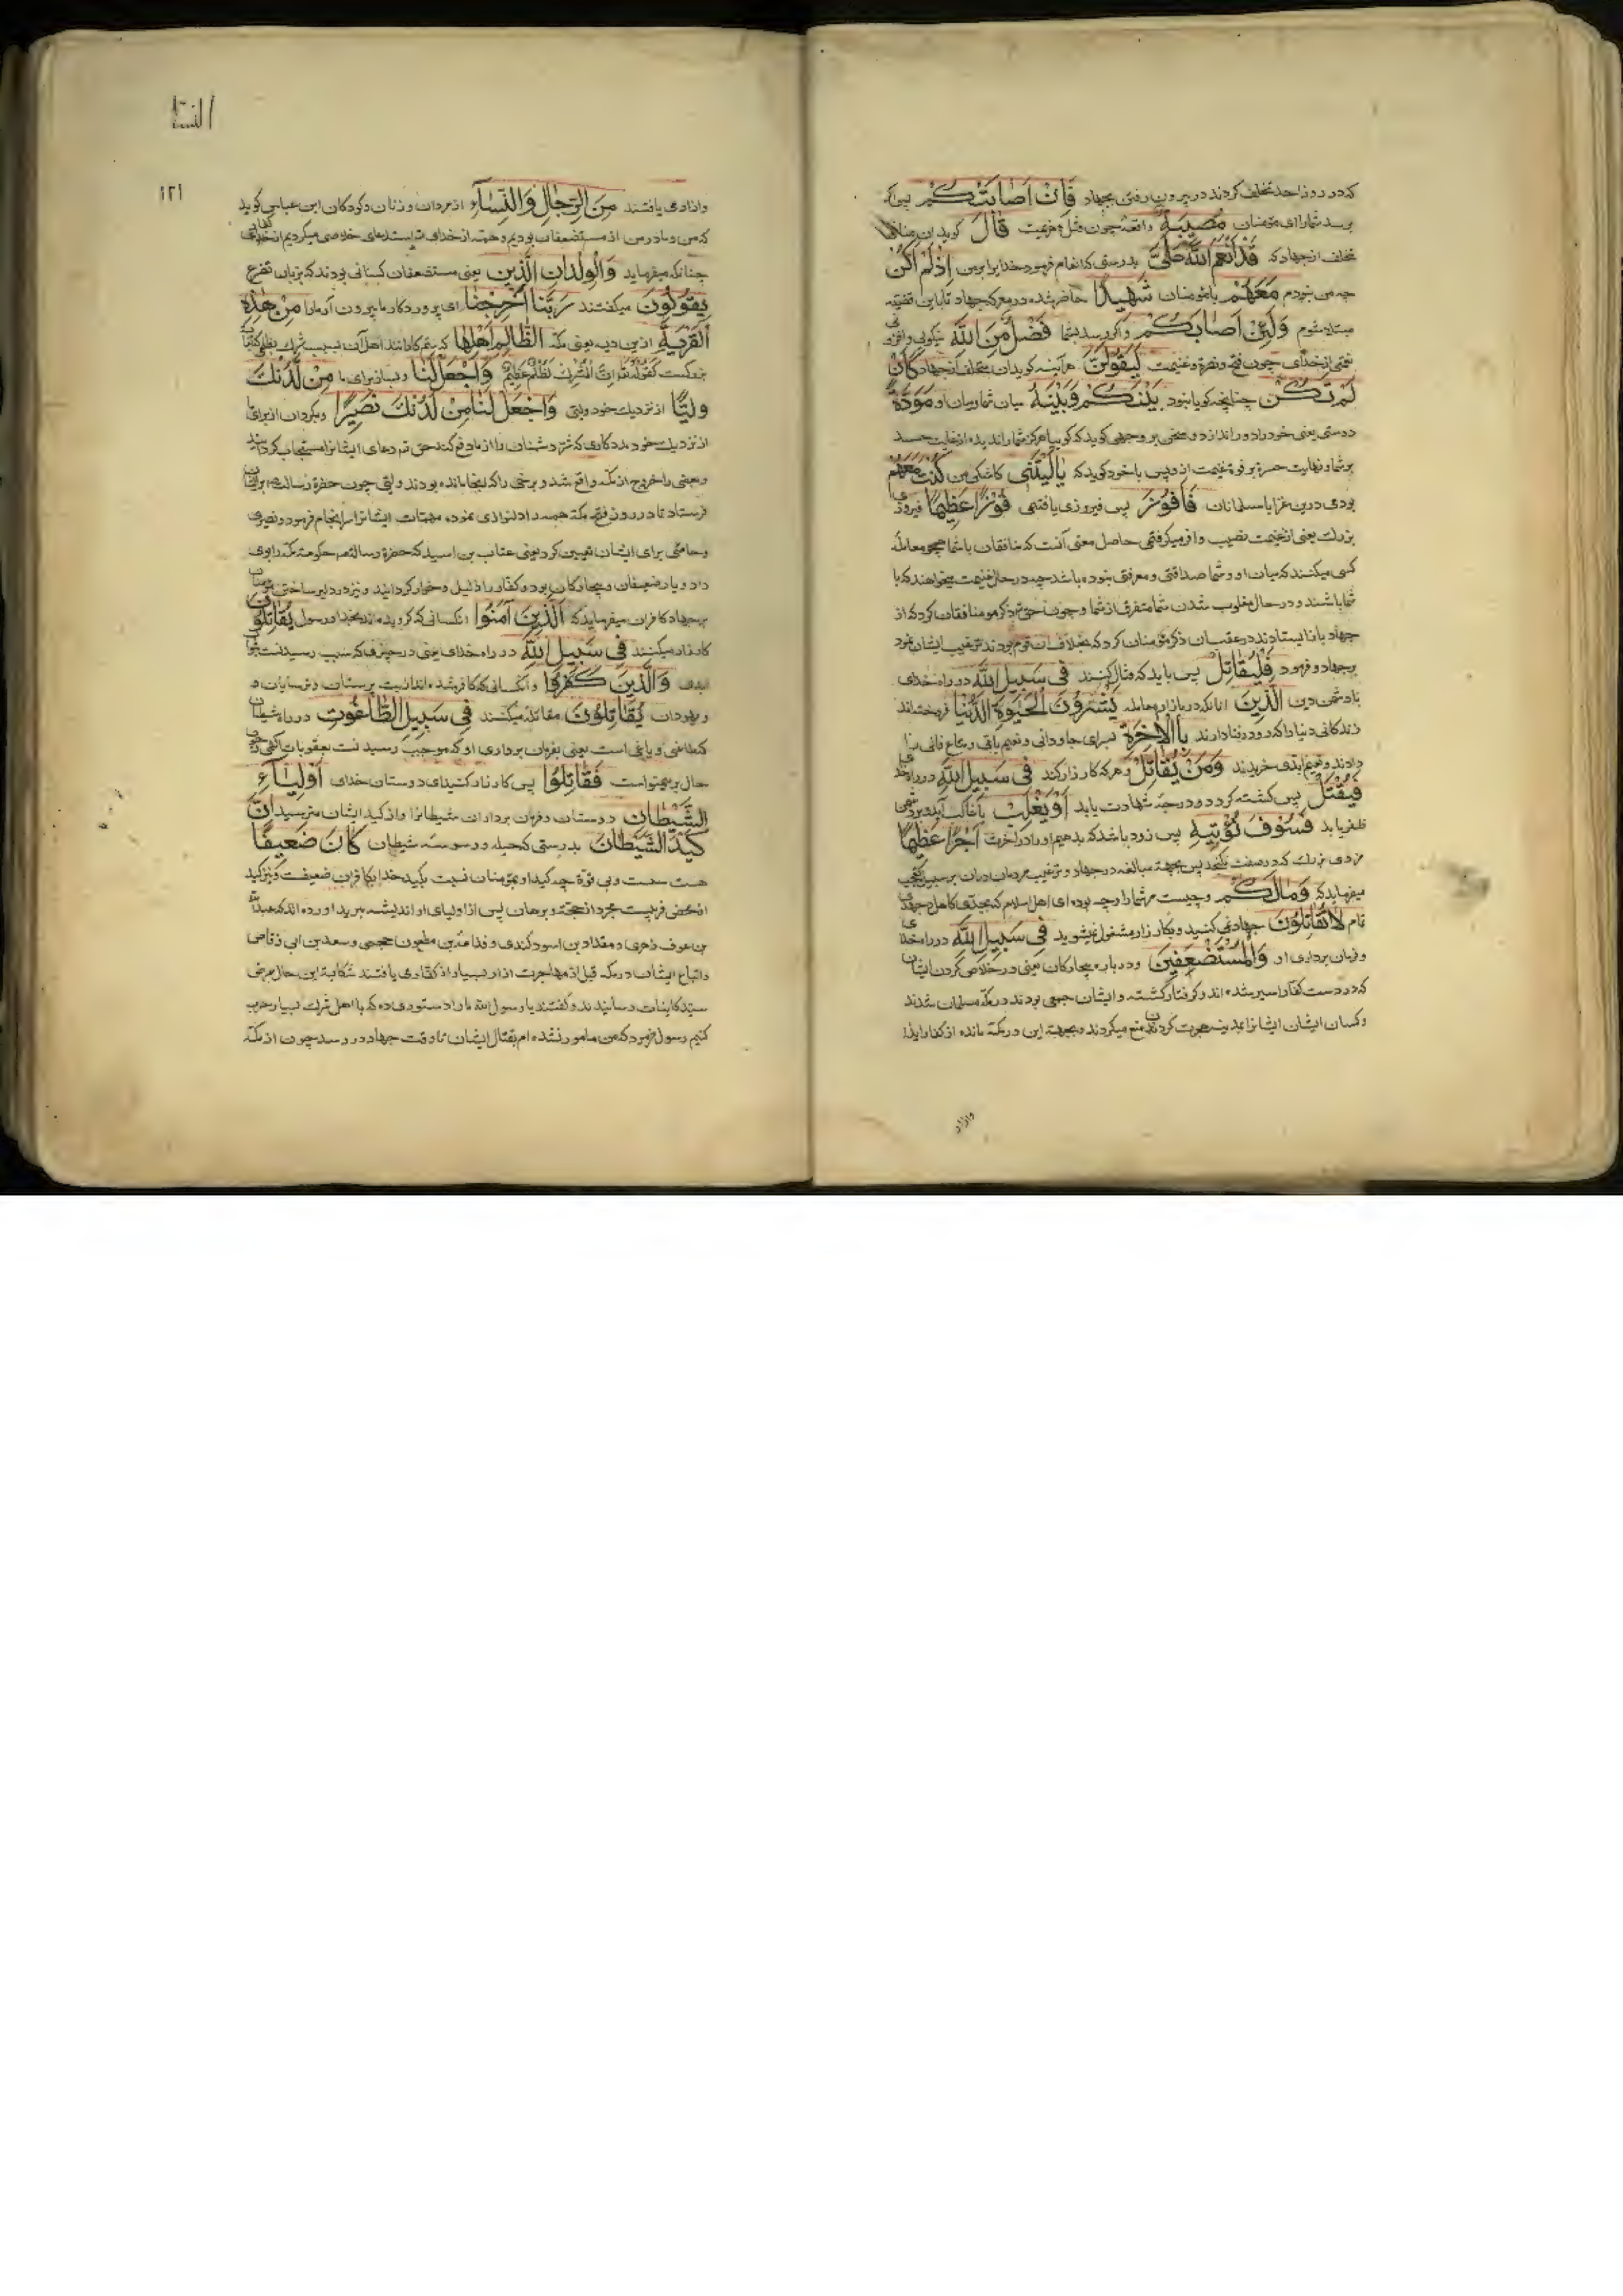 که در روز احد تخلف کردند در بیرون رفتن بجهاد فَاِنْ اَصَابَتْكُمْ پس اگر
برسد شما را ای مؤمنان مُصِیبَةٌ واقعهٔ چون قتل و هزیمت قَالَ کوید این منافق
تخلف از جهاد که قَدْ اَنْعَمَ اللّٰهُ عَلَیَّ بدرستی که انعام فرمود خدا برابر من اِذْ لَمْ اَکُنْ
چه من نبودم مَعَهُمْ با مؤمنان شَهِیدًا حاضر شده در معرکه جهاد تا باین قضیه
مبتلا میشوم وَلَئِنْ اَصَابَکُمْ و اگر برسد بشما فَضْلٌ مِنَ اللّٰهِ نیکویی و افزونی
یعنی از خدای چون فتح و نصرة و غنیمت لَیَقُولَنَّ هر آینه کوید آن متخلف از جهاد کَاَنْ
لَمْ تَکُنْ چنانچه کویا نبود بَیْنَکُمْ وَبَیْنَهُ میان شما و میان او مَوَدَّةٌ
دوستی یعنی خود را دور اندازد و سخنی بر وجهی کوید که کوییا هرکز شما را ندیده از غایت حسد
بر شما و نهایت حسرة بر فوت غنیمت از و پس با خود کوید که یَا لَیْتَنِی کاشکی من کُنْتُ مَعَهُمْ
بودی درین غزا با مسلمانان فَاَفُوزَ پس فیروزی یافتمی فَوْزًا عَظِیمًا فیروزی
بزرك یعنی از غنیمت نصیب وافر میکرفتمی حاصل معنی آنست که منافقان با شما همچو معامله
کسی میکنند که میان او و شما صداقتی و معرفتی نبوده باشد چه در حال غنیمت میخواهند که با
شما باشند و در حال مغلوب شدن شما متفرق از شما و چون حق تع ذکر مومنافقان کرد که از
جهاد باز ایستادند در عقب آن ذکر مؤمنان کرد که بخلاف آن قوم بودند ترغیب ایشان نمود
بر جهاد و فرمود فَلْیُقَاتِلْ پس باید که قتال کنند فِی سَبِیلِ اللّٰهِ در راه خدای
با دشمن دین اَلَّذِینَ آنانکه در بازار معامله یَشْرُونَ الْحَیٰوةَ الدُّنْیَا فروخته‌اند
زندکانی دنیا را که رو در فنا دارند بِالْاٰخِرَةِ بسرای جاودانی و نعیم باقی و متاع فانی را
دادند و نعیم ابدی خریدند وَمَنْ یُقَاتِلْ و هر که کارزار کند فِی سَبِیلِ اللّٰهِ در راه خدای
فَیُقْتَلْ پس کشته کردد و درجهٔ شهادت یابد اَوْ یَغْلِبْ یا غالب آید بر دشمن
ظفر یابد فَسَوْفَ نُؤْتِیهِ پس زود باشد که بدهیم او را در آخرت اَجْرًا عَظِیمًا
مزدی بزرك که در صفت نکنجد پس بجهة مبالغه در جهاد و ترغیب مردمان در آن بر سبیل تعجب
میفرماید که وَمَا لَکُمْ و چیست مر شما را و چه بوده ای اهل اسلام که بجدی کامل و جهدی
تام لَا تُقَاتِلُونَ جهاد نمی کنید و بکارزار مشغول نمیشوید فِی سَبِیلِ اللّٰهِ در راه خدای
و فرمان برداری او وَالْمُسْتَضْعَفِینَ و در باره بیچارکان یعنی در خلاص کردن ایشان
که در دست کفار اسیر شده اند و کرفتار کشته و ایشان جمعی بودند در مکه مسلمان شدند
و کسان ایشان ایشانرا بمدینه هجرت کردن منع میکردند و بجهة این در مکه مانده از کفار ایذا
وازار
النسا
۱۲۱
وازاری یافتند مِنَ الرِّجَالِ وَالنِّسَاءِ از مردان و زنان و کودکان ابن عباس کوید
که من و مادر من از مستضعفان بودیم و همه از خدای تع استدعای خلاصی میکردیم از
چنانکه میفرماید وَالْوِلْدَانِ الَّذِینَ یعنی مستضعفان کسانی بودند که بزبان تضرع
یَقُولُونَ میکفتند رَبَّنَا اَخْرِجْنَا ای پروردکار ما بیرون آر ما را مِنْ هٰذِهِ
الْقَرْیَةِ ازین دیه یعنی مکه الظَّالِمِ اَهْلُهَا که ستمکارانند اهل آن بسبب شرك
وَاجْعَلْ لَنَا و بساز برای ما مِنْ لَدُنْكَ
وَلِیًّا از نزدیك خود ولیی وَاجْعَلْ لَنَا مِنْ لَدُنْكَ نَصِیرًا و بکردان از برای ما
از نزدیك خود مددکاری که شر دشمنان را از ما دفع کند حق تع دعای ایشانرا مستجاب کردانید
و بعضی را خروج از مکه واقع شد و برخی را که اینجا مانده بودند ولیی چون حضرة رسالت برایشان
فرستاد تا در روز فتح مکه همه را دلنوازی نموده مهمات ایشانرا سرانجام فرمود و نصری
و حامیی برای ایشان تعیین کرد یعنی عتاب بن اسید که حضرة رسالت حکومت مکه را بوی
داد و یار ضعیفان و بیچارکان بود و کفار را ذلیل و خوار کردانید و نیز در دلیر ساختن مؤمنان
بر جهاد کافران میفرماید که اَلَّذِینَ اٰمَنُوا آنکسانی که کرویده اند بخدا و رسول یُقَاتِلُونَ
کارزار میکنند فِی سَبِیلِ اللّٰهِ در راه خدای یعنی در چیزی که سبب رسیدنست بثواب
ابدی وَالَّذِینَ کَفَرُوا و آنکسانی که کافر شده اند از بت پرستان و ترسایان و
و یهودان یُقَاتِلُونَ مقاتله میکنند فِی سَبِیلِ الطَّاغُوتِ در راه شیطان
که طاغی و یاغی است یعنی بفرمان برداری او که موجب رسیدنست بعقوبات الهی و چون
حال برینمنوالست فَقَاتِلُوا پس کارزار کنید ای دوستان خدای اَوْلِیَاءَ
الشَّیْطَانِ دوستان و فرمان برداران شیطانرا و از کید ایشان مترسید اِنَّ
کَیْدَ الشَّیْطَانِ بدرستی که حیله و وسوسهٔ شیطان کَانَ ضَعِیفًا
هست سست و بی قوة چه کید او بمؤمنان نسبت بکید خدا بکافران ضعیفست و نیز کید
او محض فریبست مجرد از حجة و برهان پس از اولیای او اندیشه مبرید آورده اند که عبدالرحمن
بن عوف زهری و مقداد بن اسود کندی و قدامة بن مظعون جمحی و سعد بن ابی وقاص
و اتباع ایشان در مکه قبل از مهاجرت آزار بسیار از کفار می یافتند شکایة این حال بعرض
سید کاینات رسانیدند و کفتند یا رسول الله ما را دستوری ده که با اهل شرك بسیار حرب
کنیم رسول فرمود که من مامور نشده ام بقتال ایشان تا وقت جهاد در رسد چون از مکه